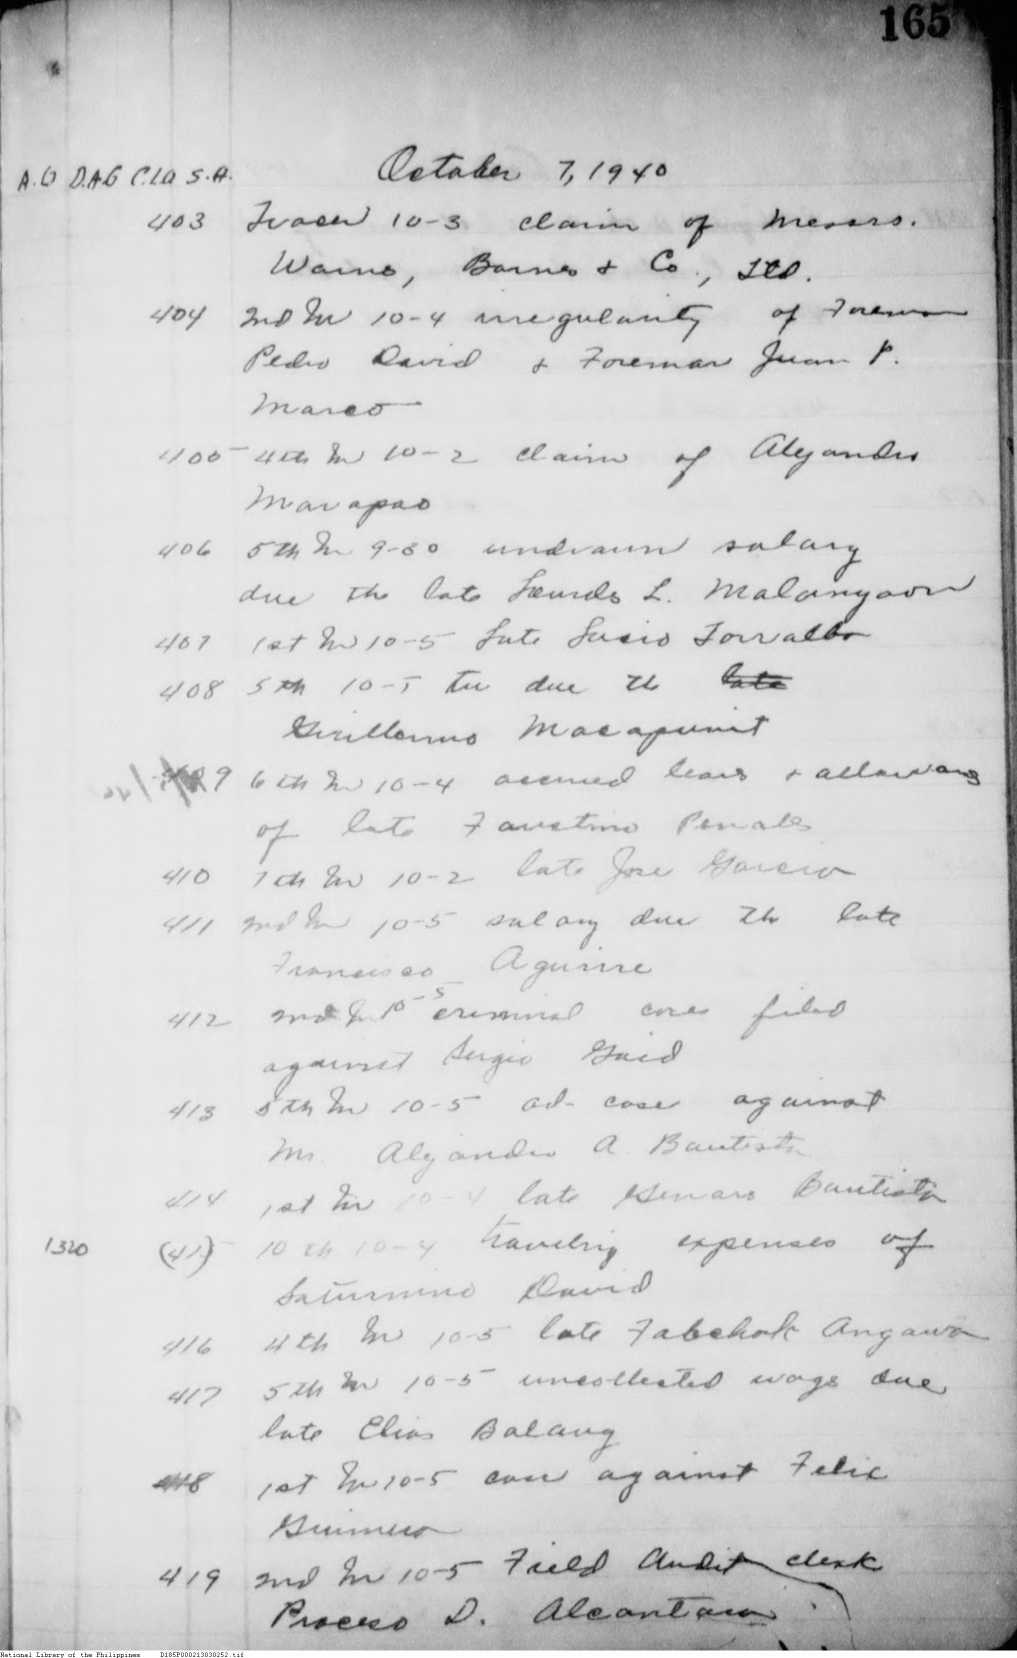 165
October 7, 1940
A.G D.A.G C.LA S.A.
403 Tracer 10-3 claim of Messrs.
Warns, Barnes & Co., Ltd.
404 2nd In 10-4 irregularity of Foreman
Pedro David & Foreman Juan P.
Marco
405 4th In 10-2 claim of Alejandro
Marapao
406 5th In 9-30 undrawn salary
due the late Lourdes L. Malangaon
407 1st In 10-5 late Lucio Torralba
408 5th 10-5 tu due the late
Guillermo Macapunit
409 6th In 10-4 accrued leave & allowans
of late Faustino Penales
410 7th In 10-2 late Jose Garcia
411 2nd In 10-5 salary due the late
Francisco Aguirre
412 2nd In 10-5 criminal case filed
against Sergio Gaid
413 5th In 10-5 ad- case against
Mr. Alejandro A. Bautista
414 1st In 10-4 late Genaro Bautista
1320 (415) 10th 10-4 traveling expenses of
Saturnino David
416 4th In 10-5 late Fabchok Angawa
417 5th In 10-5 uncollected wage due
late Elias Balang
418 1st In 10-5 case against Felix
419 2nd In 10-5 Field Audit clerk
Proceso D. Alcantara
National Library of the Philippines D185P000213030252.tif